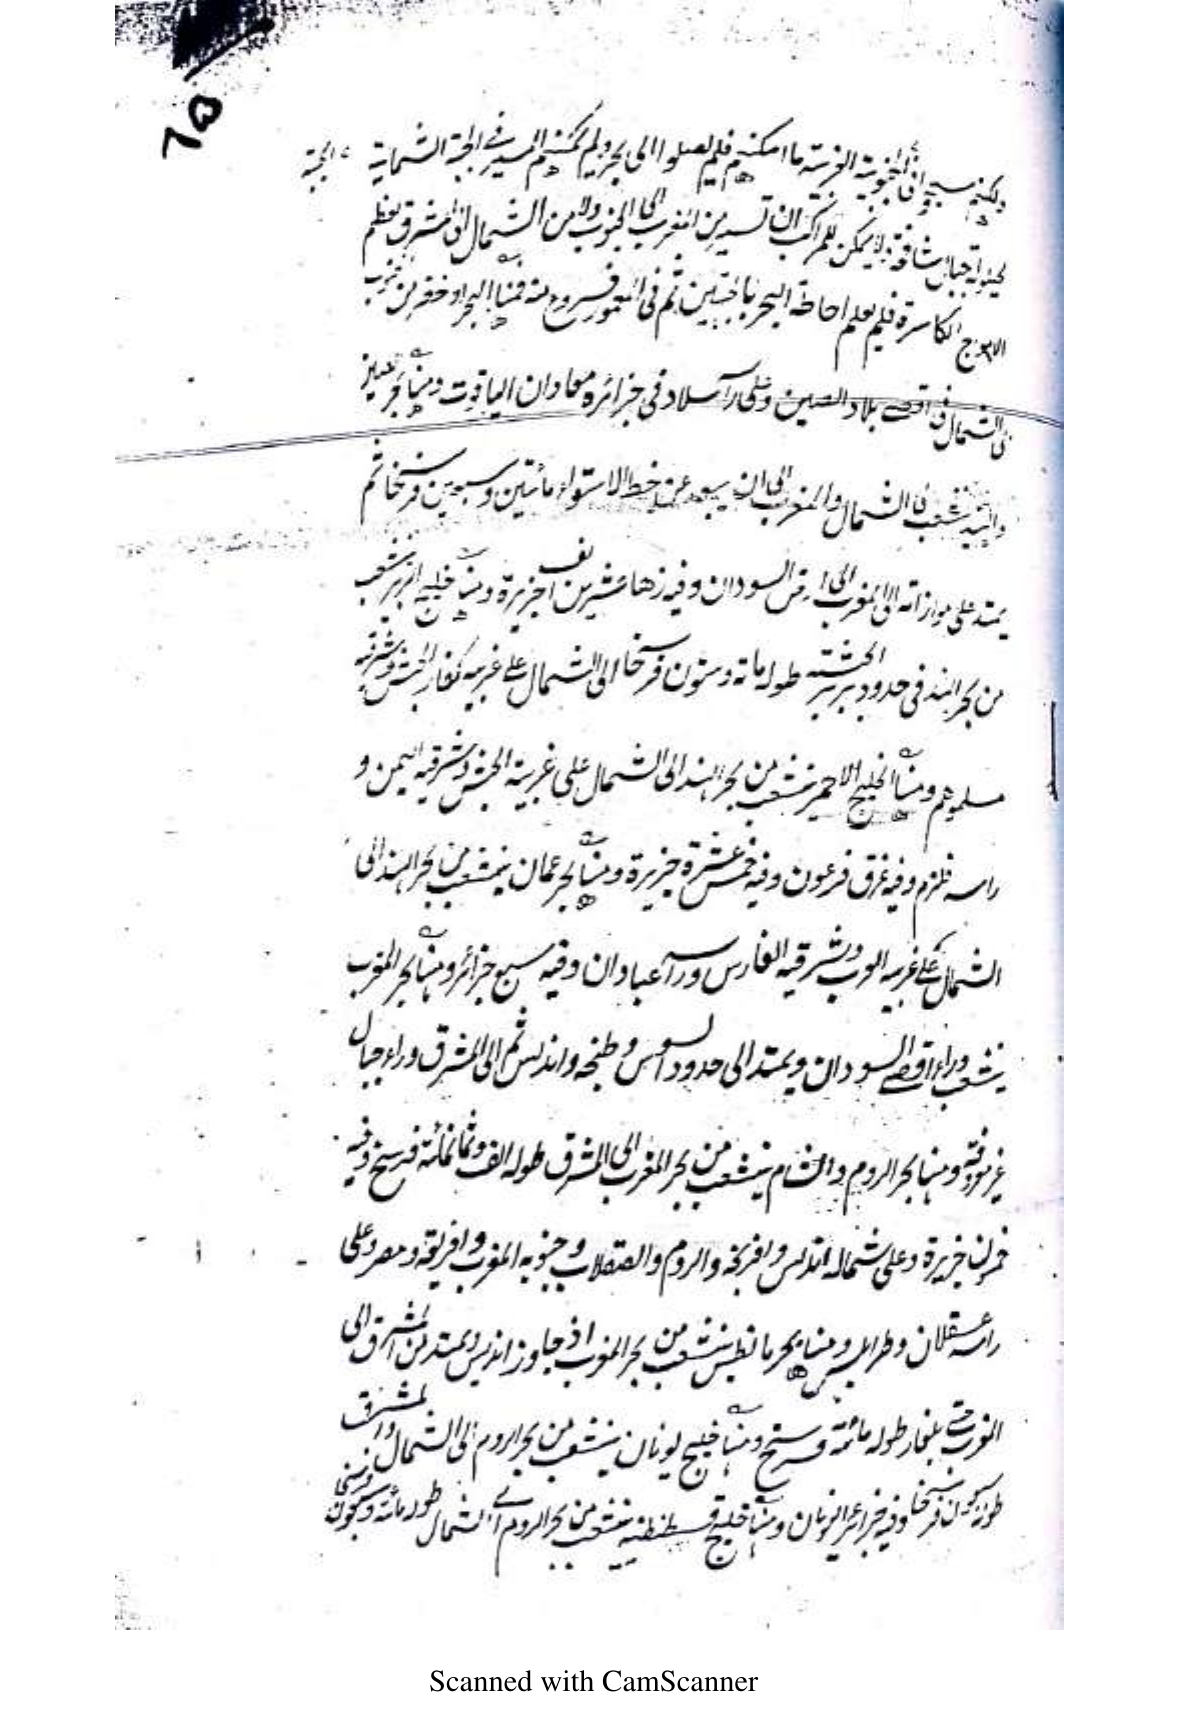 ٦٥
ولكنهم سيحوا في الجنوبية الغربية ما امكنهم فلم يصلوا الى بحر ولم يمكنهم المسير في الجهة الشمالية ع الجهة
جبال شافعة لا يمكن للمراكب ان تسير من المغرب الى الجنوب ولا من الشمال الى المشرق لعظم
الامواج الكاسرة فلم يعلم احاطة البحر بالجهتين ثم في المعمور فروع منه فمنها البحر اوخضر من جنوب
الى الشمال في اقصى بلاد الصين وعلى رأسه بلاد في جزائره معادن الياقوت ومنها بحر
الهند ينشعب في الشمال والمغرب الى ان يبعد عن خط الاستواء مأتين وسبعين فرسخا ثم
يمتد على موازاته الى المغرب الى ارض السودان وفيه زهاء عشرين الف جزيرة ومنها خليج البربر ينشعب
من بحر الهند في حدود بربر الحبشة طوله ماة وستون فرسخا الى الشمال على غربيه كفار الحبش وشرقيه
مسلميهم ومنها الخليج الاحمر ينشعب من بحر الهند الى الشمال على غربية الحبش وشرقيه اليمن و
راسه قلزم وفيه غرق فرعون وفيه خمس عشرة جزيرة ومنها بحر عمان ينشعب من بحر الهند الى
الشمال على غربيه العرب وشرقيه الفارس ورأسه عبادان وفيه سبع جزائر ومنها بحر المغرب
ينشعب وراء اقصى السودان ويمتد الى حدود السوس وطنجه واندلس ثم الى المشرق وراء جبال
غير معروفة ومنها بحر الروم والشام ينشعب من بحر المغرب الى المشرق طوله الف وثمانمائة فرسخ وفيه
خمسون جزيرة وعلى شماله اندلس وافرنجه والروم والصقلاب وجنوبه المغرب وافريقة ومصر وعلى
راسه عسقلان وطرابلس ومنها بحر مانطيس ينشعب من بحر المغرب اذ جاوز اندلس ويمتد من المشرق الى
الغرب حتى بلغار طوله مائة فرسخ ومنها خليج يونان ينشعب من بحر الروم الى الشمال والمشرق
طوله سبعون فرسخا وفيه جزائر اليونان ومنها خليج قسطنطنيه ينشعب من بحر الروم الى الشمال طوله مائة وسبعون فرسخا
Scanned with CamScanner